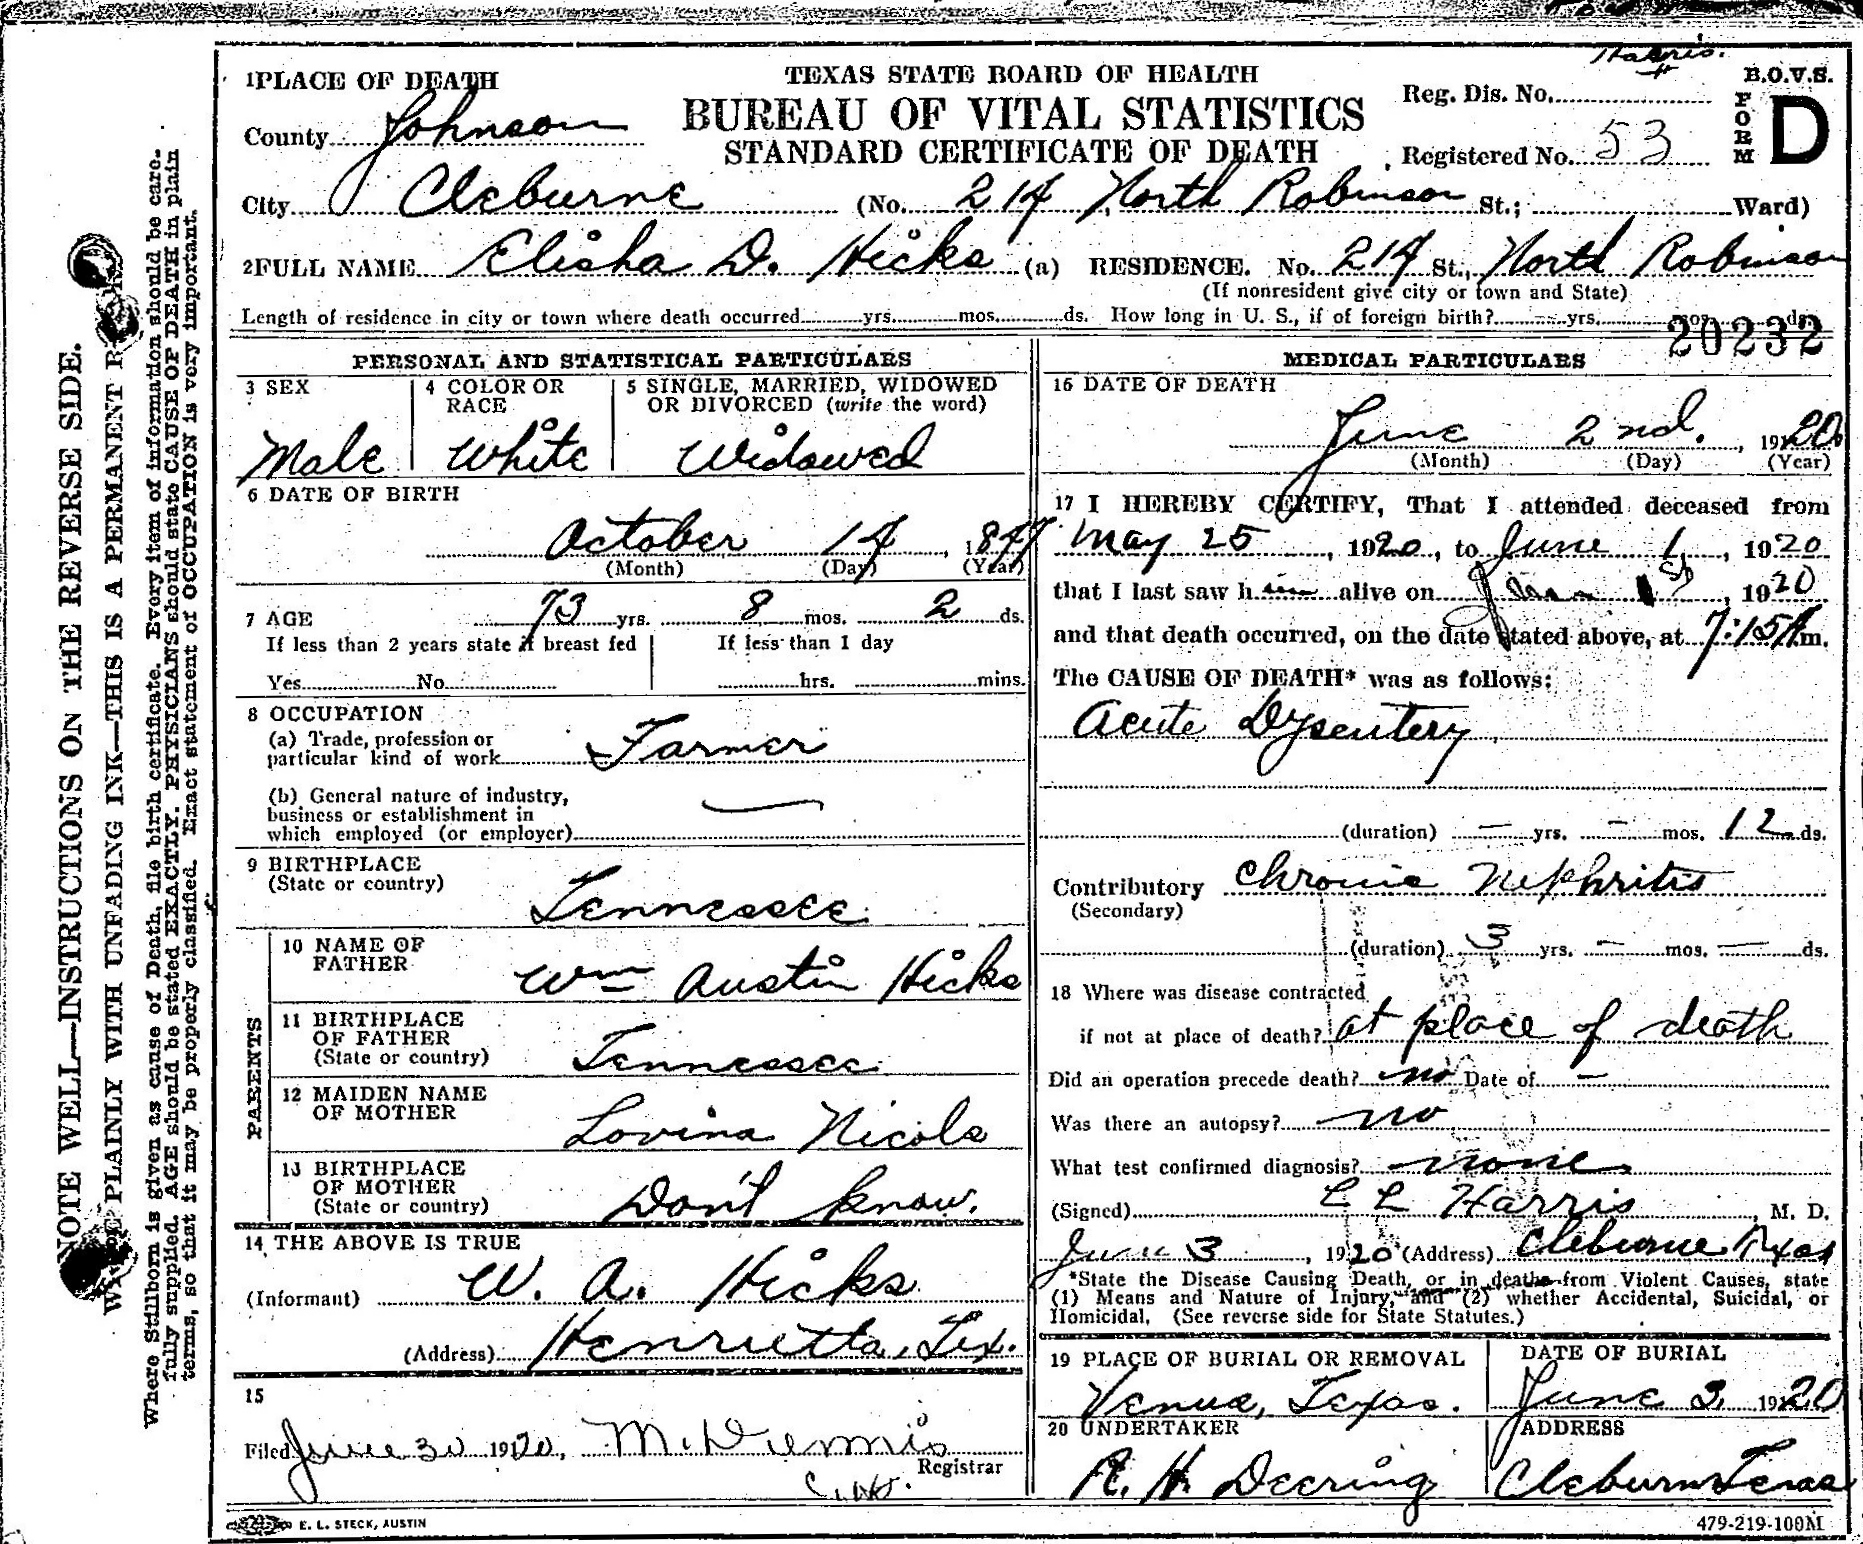 Harris.
1PLACE OF DEATH
TEXAS STATE BOARD OF HEALTH
B.O.V.S.
County Johnson
BUREAU OF VITAL STATISTICS
Reg. Dis. No.
FORM D
STANDARD CERTIFICATE OF DEATH
Registered No. 53
City Cleburne (No. 214 North Robinson St.; Ward)
2FULL NAME Elisha D. Hicks (a) RESIDENCE. No. 214 St., North Robinson
(If nonresident give city or town and State)
Length of residence in city or town where death occurred yrs. mos. ds. How long in U. S., if of foreign birth? yrs. mos. ds.
20232
PERSONAL AND STATISTICAL PARTICULARS
3 SEX
Male
4 COLOR OR RACE
White
5 SINGLE, MARRIED, WIDOWED
OR DIVORCED (write the word)
Widowed
6 DATE OF BIRTH
October 14, 1847
(Month) (Day) (Year)
7 AGE 73 yrs. 8 mos. 2 ds.
If less than 2 years state if breast fed
Yes No
If less than 1 day
hrs. mins.
8 OCCUPATION
(a) Trade, profession or
particular kind of work Farmer
(b) General nature of industry,
business or establishment in
which employed (or employer) —
9 BIRTHPLACE
(State or country)
Tennessee
PARENTS
10 NAME OF
FATHER
Wm Austin Hicks
11 BIRTHPLACE
OF FATHER
(State or country) Tennessee
12 MAIDEN NAME
OF MOTHER
Lovina Nicols
13 BIRTHPLACE
OF MOTHER
(State or country) Don't know.
14 THE ABOVE IS TRUE
(Informant) W. A. Hicks
(Address) Henrietta, Tex.
15
Filed June 30 1920,
Registrar
MEDICAL PARTICULARS
16 DATE OF DEATH
June 2nd., 1920
(Month) (Day) (Year)
17 I HEREBY CERTIFY, That I attended deceased from
May 25, 1920, to June 1, 1920
that I last saw him alive on June 1st, 1920
and that death occurred, on the date stated above, at 7:15 A m.
The CAUSE OF DEATH* was as follows:
Acute Dysentery
(duration) — yrs. — mos. 12 ds.
Contributory Chronic Nephritis
(Secondary)
(duration) 3 yrs. — mos. — ds.
18 Where was disease contracted
if not at place of death? at place of death
Did an operation precede death? no Date of —
Was there an autopsy? no
What test confirmed diagnosis? none
(Signed) L L Harris, M. D.
June 3, 1920 (Address) Cleburne Texas
*State the Disease Causing Death, or in deaths from Violent Causes, state
(1) Means and Nature of Injury, and (2) whether Accidental, Suicidal, or
Homicidal. (See reverse side for State Statutes.)
19 PLACE OF BURIAL OR REMOVAL
Venus, Texas.
DATE OF BURIAL
June 3, 1920
20 UNDERTAKER
R. H. Deering
ADDRESS
Cleburne Texas
E. L. STECK, AUSTIN
479-219-100M
NOTE WELL—INSTRUCTIONS ON THE REVERSE SIDE.
PLAINLY WITH UNFADING INK—THIS IS A PERMANENT
Where Stillborn is given as cause of Death, file birth certificate. Every item of information should be care-
fully supplied. AGE should be stated EXACTLY. PHYSICIANS should state CAUSE OF DEATH in plain
terms, so that it may be properly classified. Exact statement of OCCUPATION is very important.